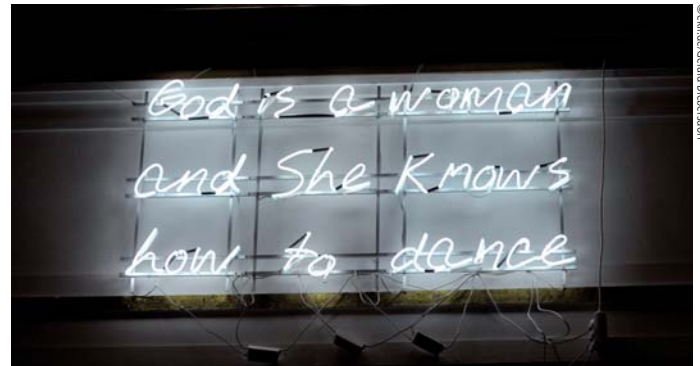 God is a woman
and She Knows
how to dance